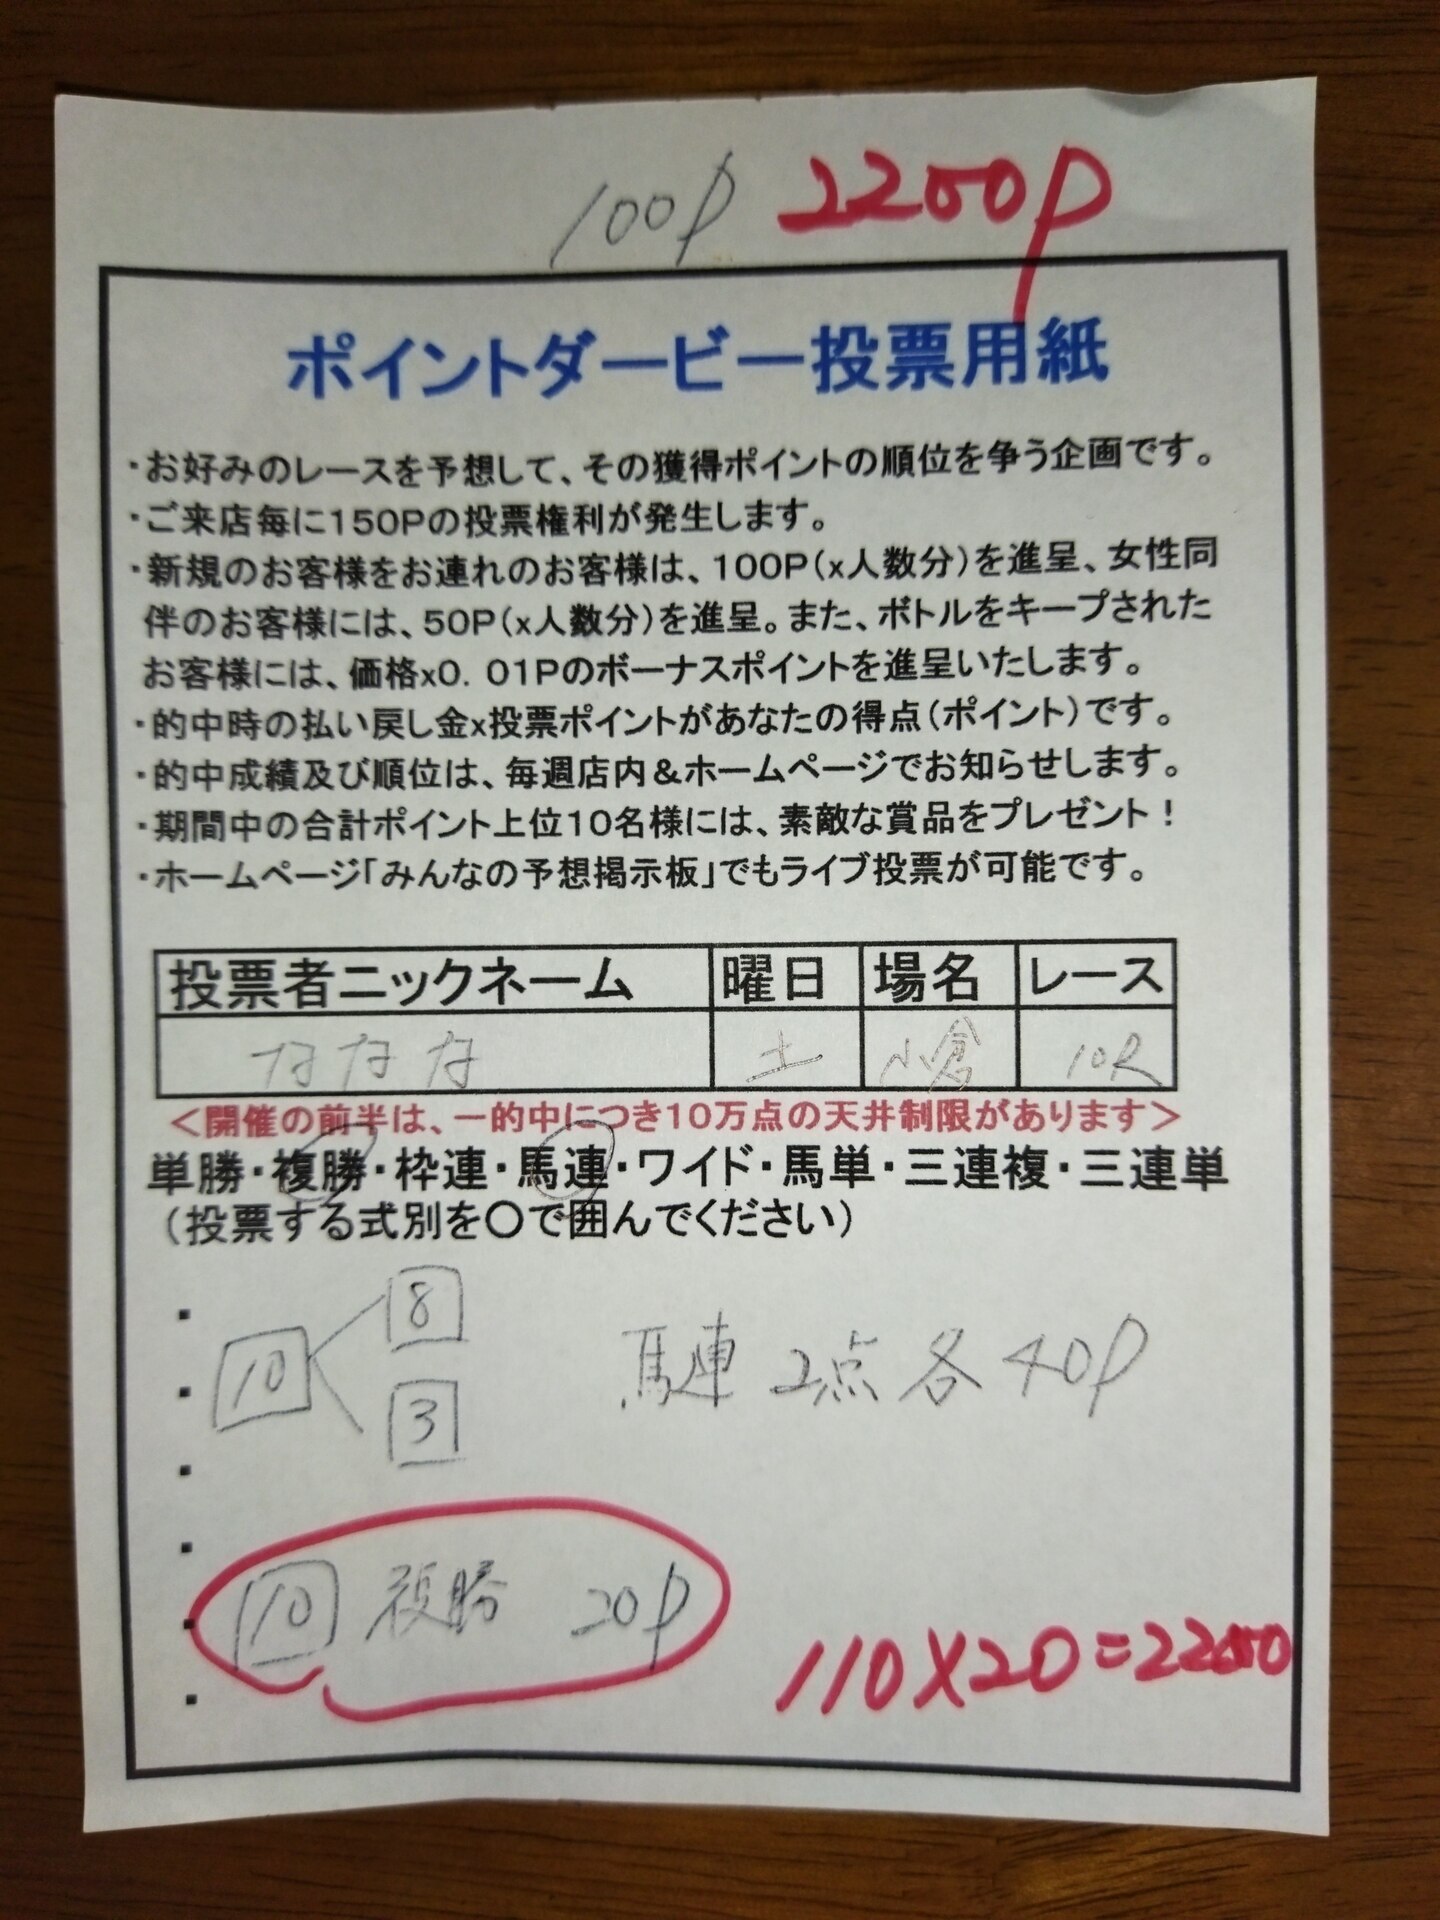 100P 2200P
ポイントダービー投票用紙
・お好みのレースを予想して、その獲得ポイントの順位を争う企画です。
・ご来店毎に150Pの投票権利が発生します。
・新規のお客様をお連れのお客様は、100P(x人数分)を進呈、女性同
伴のお客様には、50P(x人数分)を進呈。また、ボトルをキープされた
お客様には、価格x0.01Pのボーナスポイントを進呈いたします。
・的中時の払い戻し金x投票ポイントがあなたの得点(ポイント)です。
・的中成績及び順位は、毎週店内&ホームページでお知らせします。
・期間中の合計ポイント上位10名様には、素敵な賞品をプレゼント!
・ホームページ「みんなの予想掲示板」でもライブ投票が可能です。
投票者ニックネーム 曜日 場名 レース
ななな 土 小倉 10R
<開催の前半は、一的中につき10万点の天井制限があります>
単勝・複勝・枠連・馬連・ワイド・馬単・三連複・三連単
(投票する式別を〇で囲んでください)
8
10 馬連 2点 各40P
3
10 複勝 20P
110×20=2200